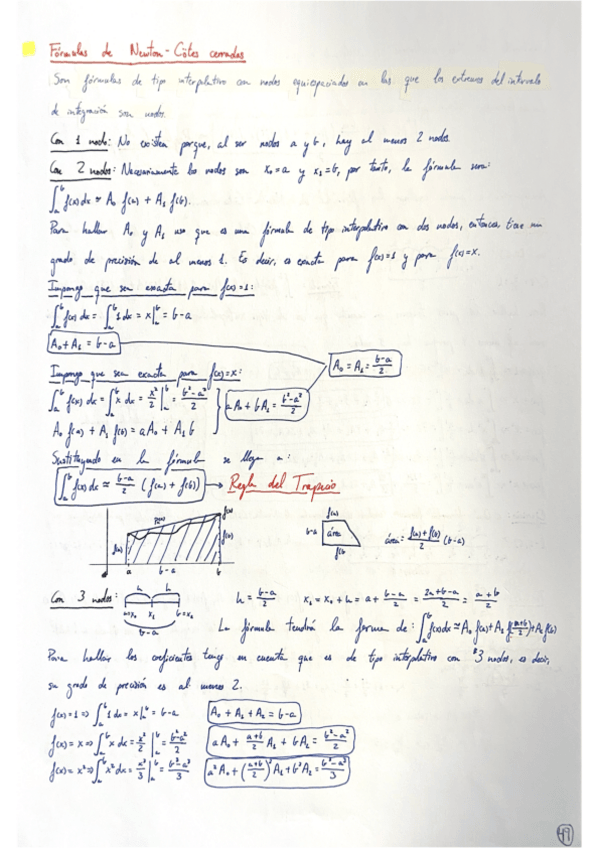 Fórmulas de Newton-Côtes cerradas
Son fórmulas de tipo interpolativo con nodos equiespaciados en las que los extremos del intervalo
de integración son nodos.
Con 1 nodo: No existen porque, al ser nodos a y b, hay al menos 2 nodos
Con 2 nodos: Necesariamente los nodos son x₀=a y x₁=b, por tanto, la fórmula sería:
∫ₐᵇ f(x)dx ≈ A₀ f(a) + A₁ f(b).
Para hallar A₀ y A₁ uso que es una fórmula de tipo interpolativo con dos nodos, entonces tiene un
grado de precisión de al menos 1. Es decir, es exacta para f(x)=1 y para f(x)=x.
Impongo que sea exacta para f(x)=1:
∫ₐᵇ f(x) dx = ∫ₐᵇ 1 dx = x|ₐᵇ = b-a
A₀+A₁ = b-a
A₀ = A₁ = (b-a)/2
Impongo que sea exacta para f(x)=x:
∫ₐᵇ f(x) dx = ∫ₐᵇ x dx = x²/2 |ₐᵇ = (b²-a²)/2
aA₀ + bA₁ = (b²-a²)/2
A₀ f(a) + A₁ f(b) = aA₀ + A₁b
Sustituyendo en la fórmula se llega a:
∫ₐᵇ f(x) dx ≈ (b-a)/2 (f(a) + f(b)) → Regla del Trapecio
f(b)
f(a)
f(b)
a
b-a
b
f(a)
b-a
área
f(b)
área = (f(a)+f(b))/2 (b-a)
Con 3 nodos:
h
h
a=x₀ x₁ b=x₂
b-a
h = (b-a)/2
x₁ = x₀ + h = a + (b-a)/2 = (2a+b-a)/2 = (a+b)/2
La fórmula tendrá la forma de: ∫ₐᵇ f(x)dx ≈ A₀ f(a) + A₁ f((a+b)/2) + A₂ f(b)
Para hallar los coeficientes tengo en cuenta que es de tipo interpolativo con 3 nodos, es decir,
su grado de precisión es al menos 2.
f(x)=1 ⇒ ∫ₐᵇ 1 dx = x|ₐᵇ = b-a
A₀ + A₁ + A₂ = b-a
f(x)=x ⇒ ∫ₐᵇ x dx = x²/2 |ₐᵇ = (b²-a²)/2
aA₀ + (a+b)/2 A₁ + bA₂ = (b²-a²)/2
f(x)=x² ⇒ ∫ₐᵇ x² dx = x³/3 |ₐᵇ = (b³-a³)/3
a²A₀ + ((a+b)/2)² A₁ + b²A₂ = (b³-a³)/3
49